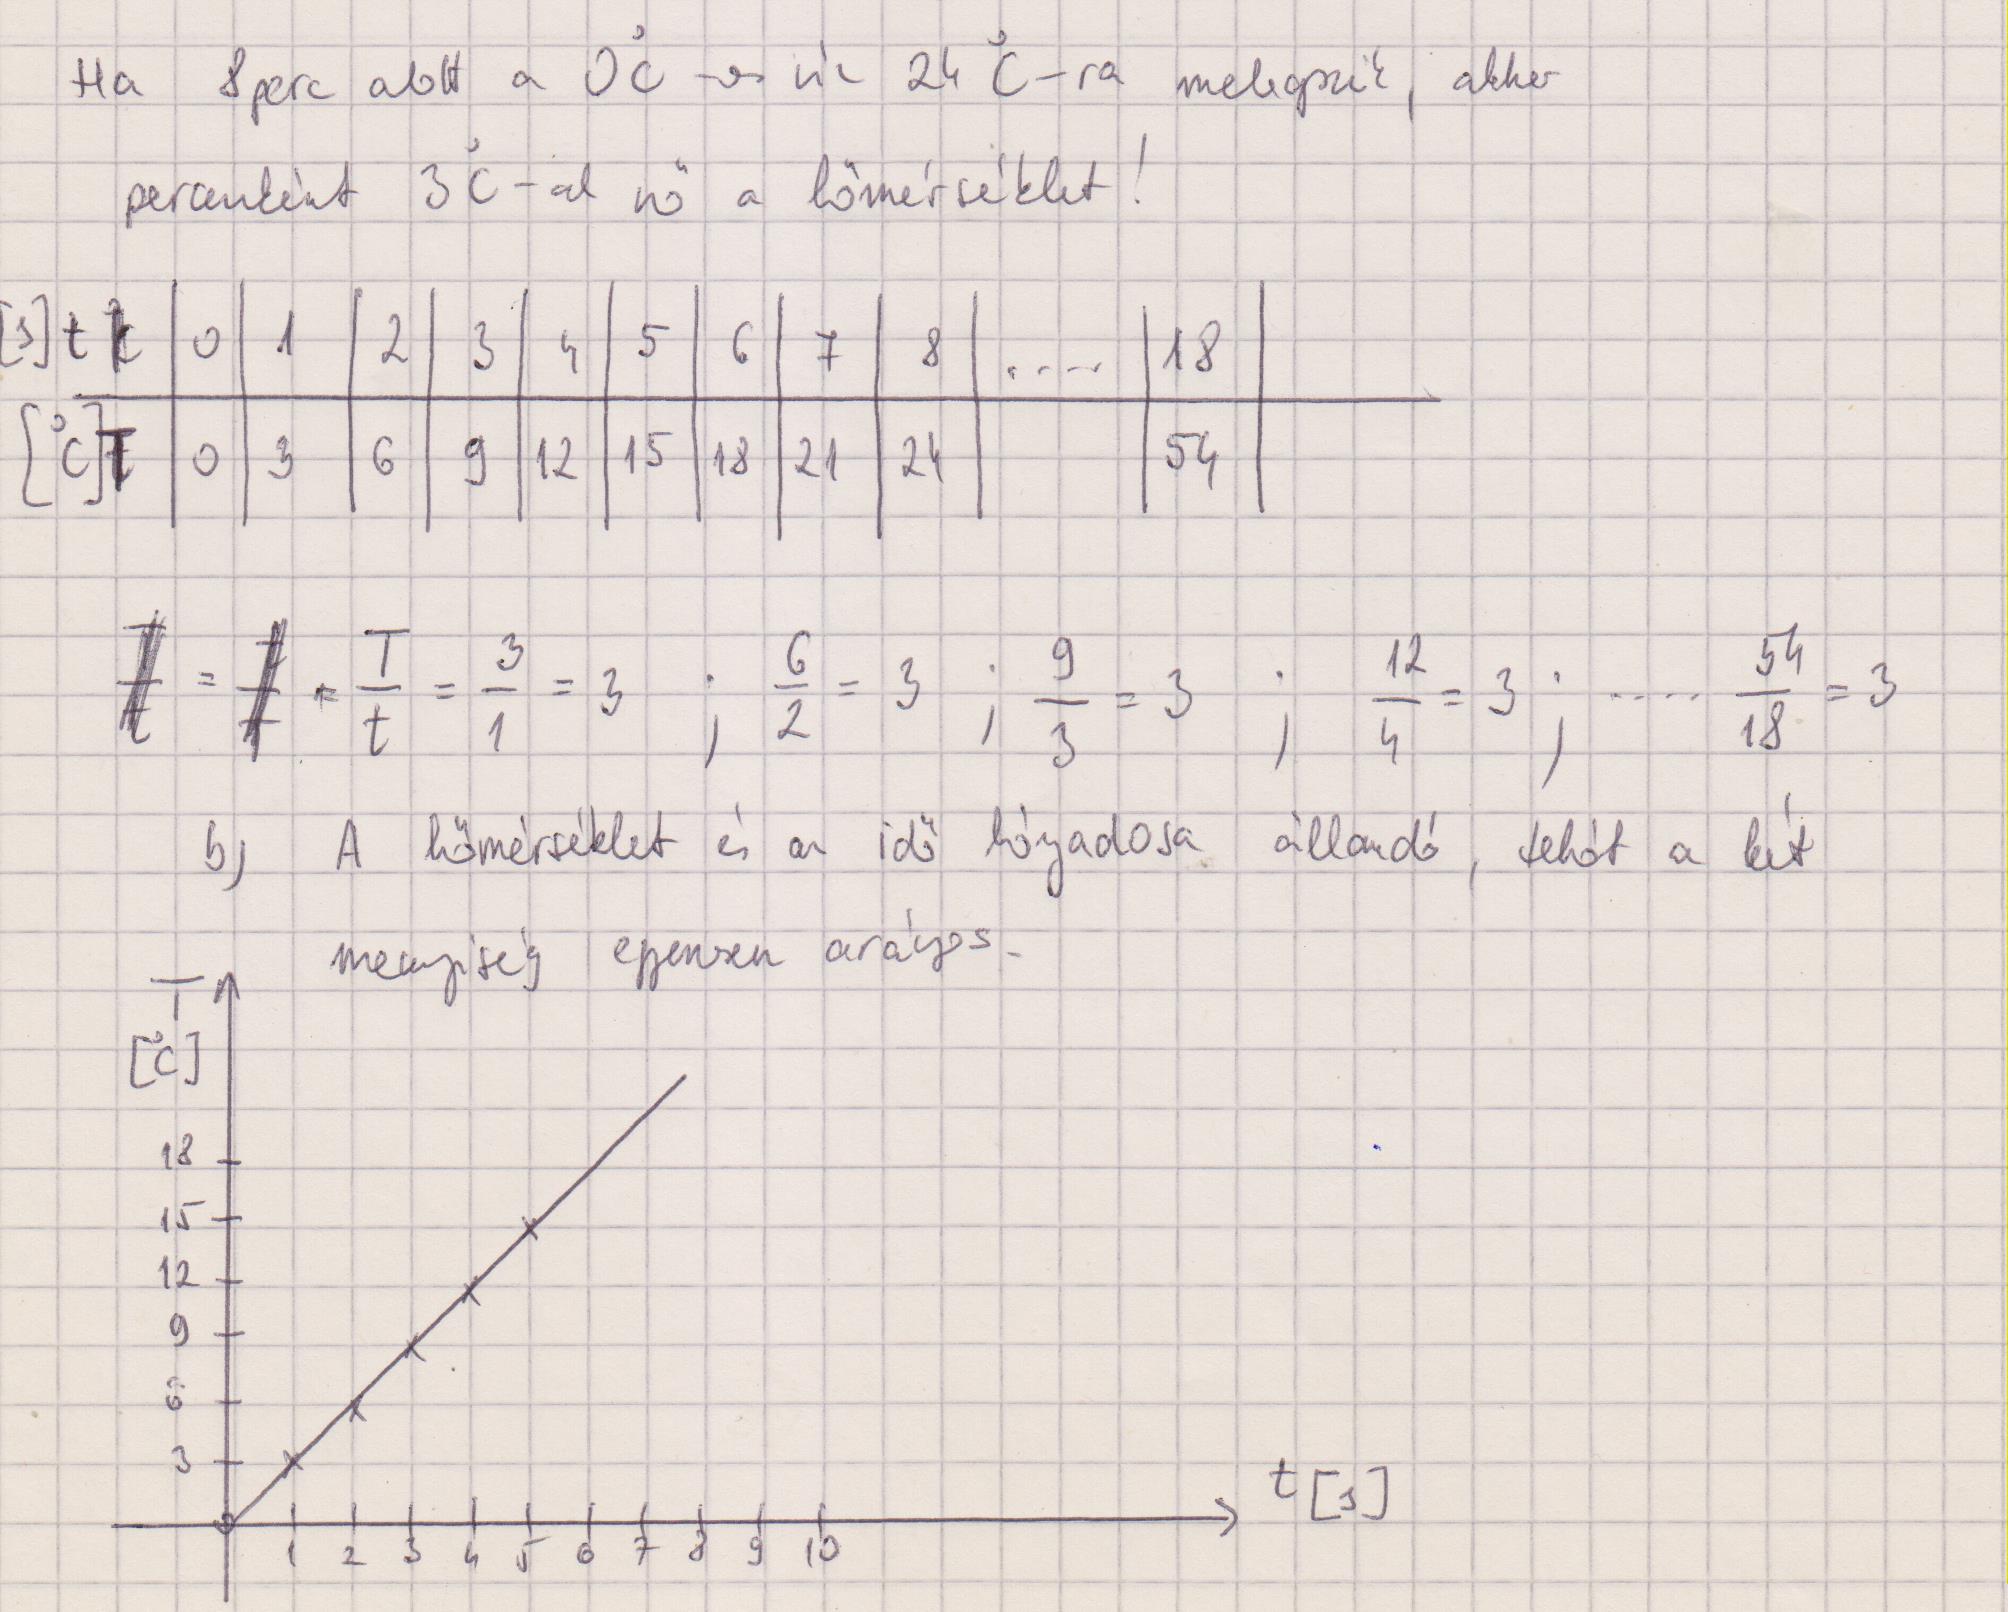 Ha 8perc alatt a 0°C-os víz 24°C-ra melegszik, akkor
percenként 3°C-al nő a hőmérséklet!
[s] t 0 1 2 3 4 5 6 7 8 .... 18
[°C] T 0 3 6 9 12 15 18 21 24 54
= = T/t = 3/1 = 3 ; 6/2 = 3 ; 9/3 = 3 ; 12/4 = 3 ; ..... 54/18 = 3
b) A hőmérséklet és az idő hányadosa állandó, tehát a két
mennyiség egyenesen arányos.
T
[°C]
18
15
12
9
6
3
t [s]
1 2 3 4 5 6 7 8 9 10